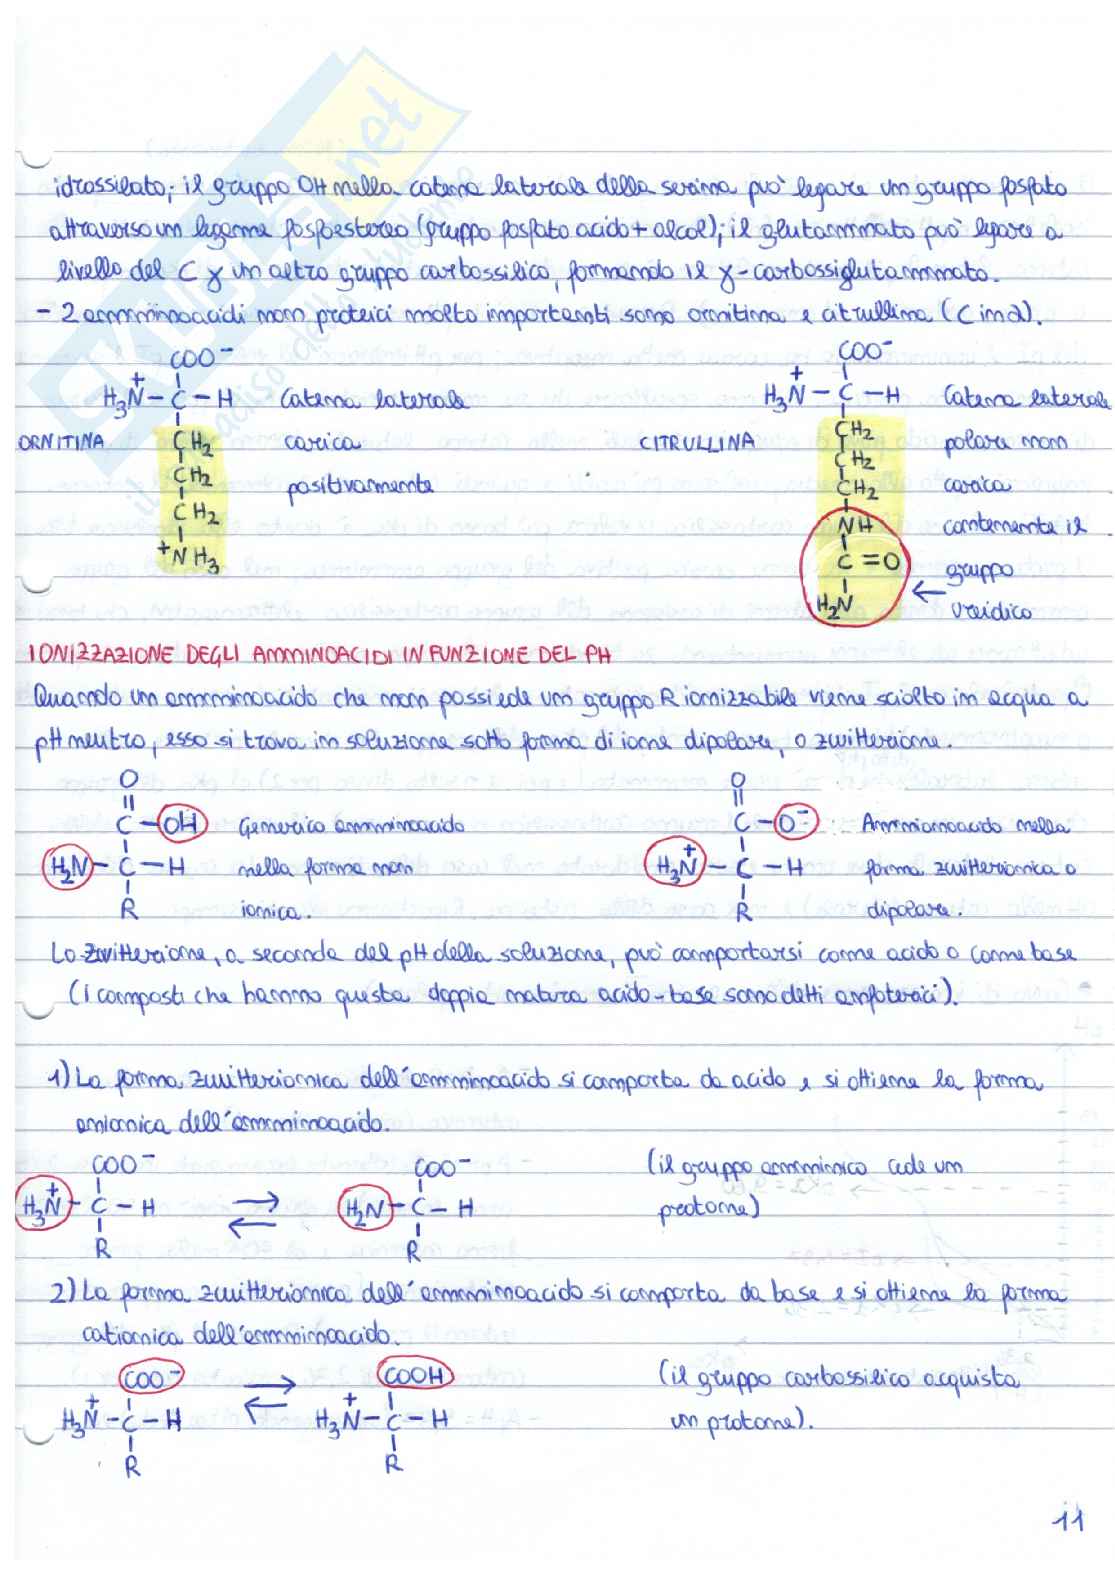 idrossilato; il gruppo OH nella catena laterale della serina può legare un gruppo fosfato
attraverso un legame fosfoestereo (gruppo fosfato acido + alcol); il glutammato può legare a
livello del C γ un altro gruppo carbossilico, formando il γ-carbossiglutammato.
- 2 amminoacidi non proteici molto importanti sono ornitina e citrullina (C in α).
COO⁻ COO⁻
H₃N⁺ – C – H Catena laterale H₃N⁺ – C – H Catena laterale
ORNITINA CH₂ carica CITRULLINA CH₂ polare non
CH₂ positivamente CH₂ CH₂ carica
CH₂ NH contenente il
⁺NH₃ C = O gruppo
H₂N ureidico
IONIZZAZIONE DEGLI AMMINOACIDI IN FUNZIONE DEL PH
Quando un amminoacido che non possiede un gruppo R ionizzabile viene sciolto in acqua a
pH neutro, esso si trova in soluzione sotto forma di ione dipolare, o zwitterione.
O O
C – OH Generico amminoacido C – O⁻ Amminoacido nella
H₂N – C – H nella forma non H₃N⁺ – C – H forma zwitterionica o
R ionica. R dipolare.
Lo zwitterione, a seconda del pH della soluzione, può comportarsi come acido o come base
(i composti che hanno questa doppia natura acido-base sono detti anfoterici).
1) La forma zwitterionica dell'amminoacido si comporta da acido e si ottiene la forma
anionica dell'amminoacido.
COO⁻ COO⁻ (il gruppo amminico cede un
H₃N⁺ – C – H ⇌ H₂N – C – H protone)
R R
2) La forma zwitterionica dell'amminoacido si comporta da base e si ottiene la forma
cationica dell'amminoacido.
COO⁻ ⇌ COOH (il gruppo carbossilico acquista
H₃N⁺ – C – H H₃N⁺ – C – H un protone).
R R
11